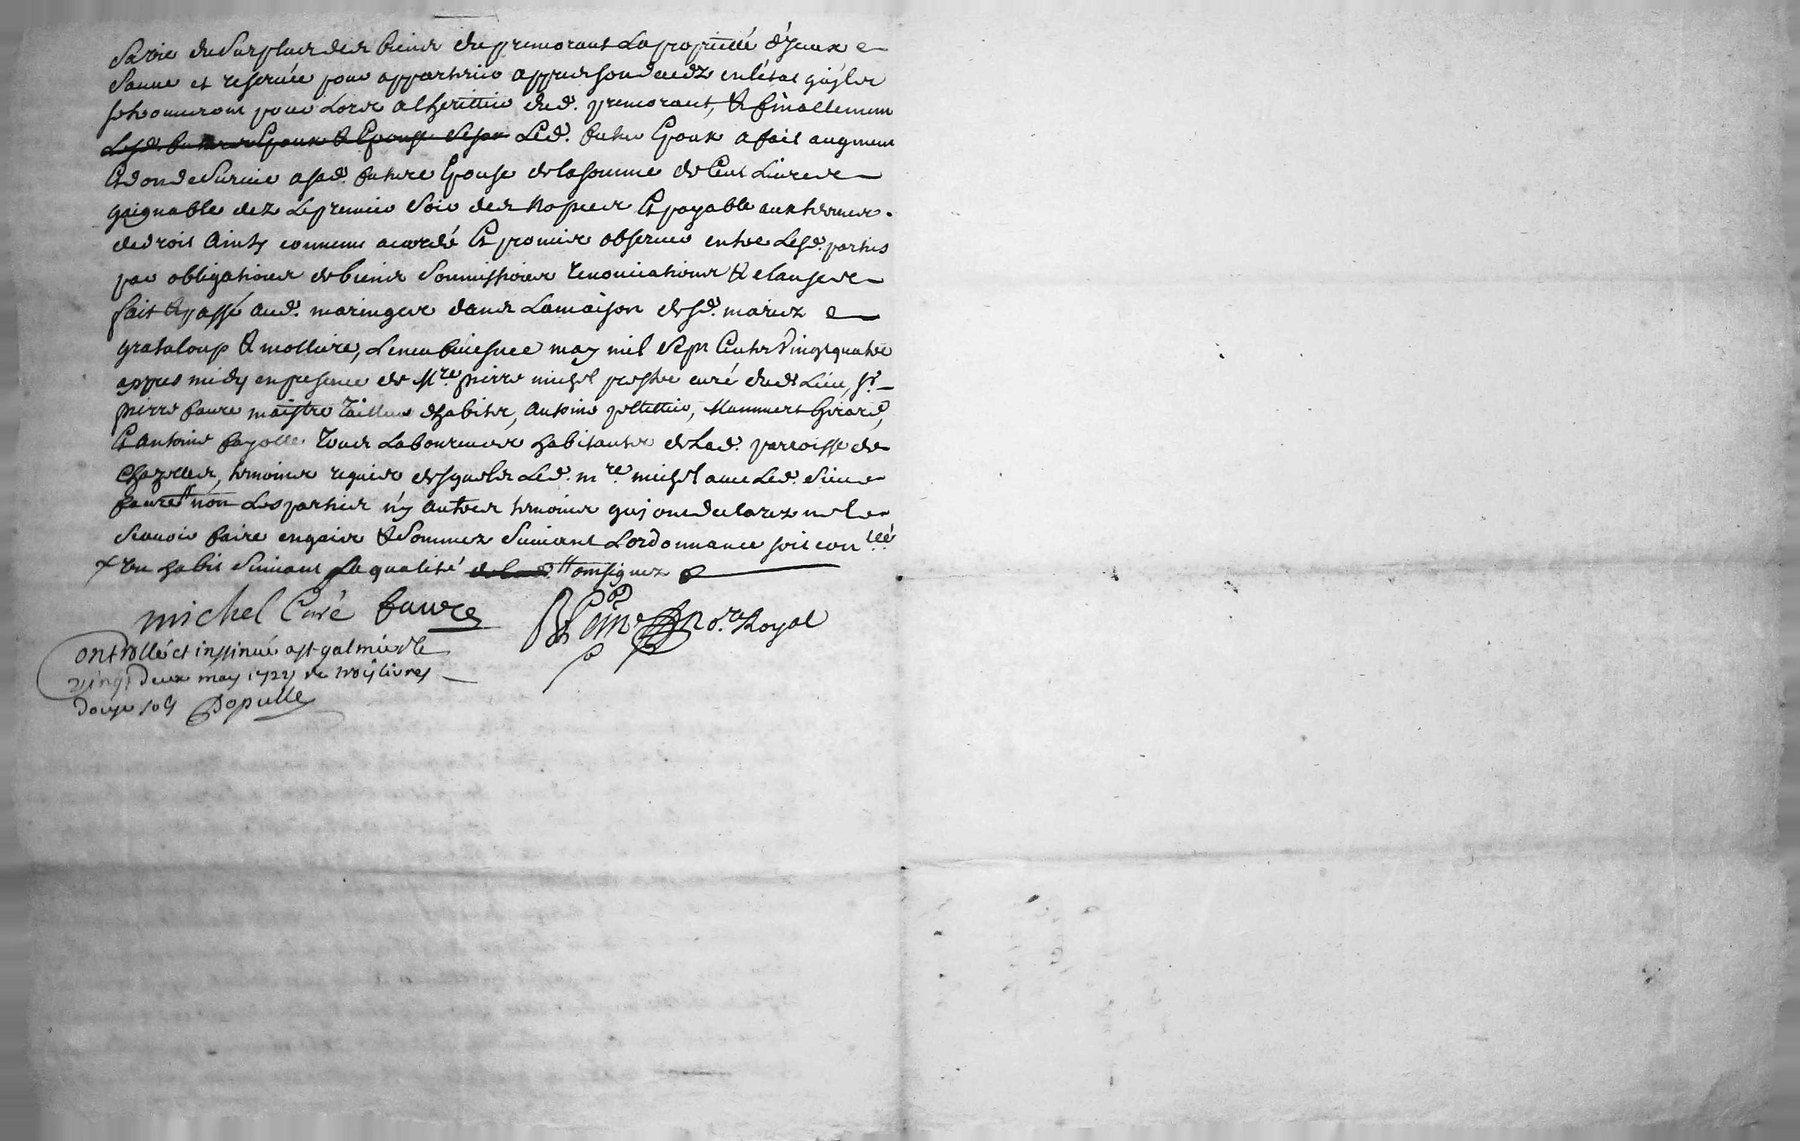 Sa vie du Surplus des biens du premorant La propriété d'jceux
Sauve et reservée pour appartenir appres son decedz en l'état qu'jls
se trouveront pour Lors a lheritier dud. premorant, & finallement
Led. futur Epoux a fait augment
Et don de Survie a sad. future Epouse de la somme de Cent Livres
gaignable dez Le premier Soir des Nopces Et payable aux termes
de droit Ainsy convenu acordé Et promis observer entre Lesd. parties
par obligations de biens Soumissions renonciations & clauses
fait & passé aud. maringes dans La maison desd. mariez
grataloup & molliere, Le neufviesme may mil Sept Cents Vingt quatre
appres midy en presence de Mre. pierre michel prestre curé dud Lieu, Sr.
pierre faure maistre Tailleur d'habits, Antoine pelletier, Mammert Girard,
Et Antoine fayolle Tous Laboureurs habitants de Lad. parroisse de
Chazelles, temoins requis desquels Led. mre. michel avec Led. Sieur
faure non Les parties n'y autres temoins quj ont declarez ne le
Scavoir faire enquis & Sommez Suivant L'ordonnance soit conllé
+ un habit Suivant Sa qualité ont signez
michel Curé faure
No.re Royal
Controllé et inssinué a st galmier le
vingt deux may 1724 re trois livres
douze sols Populle